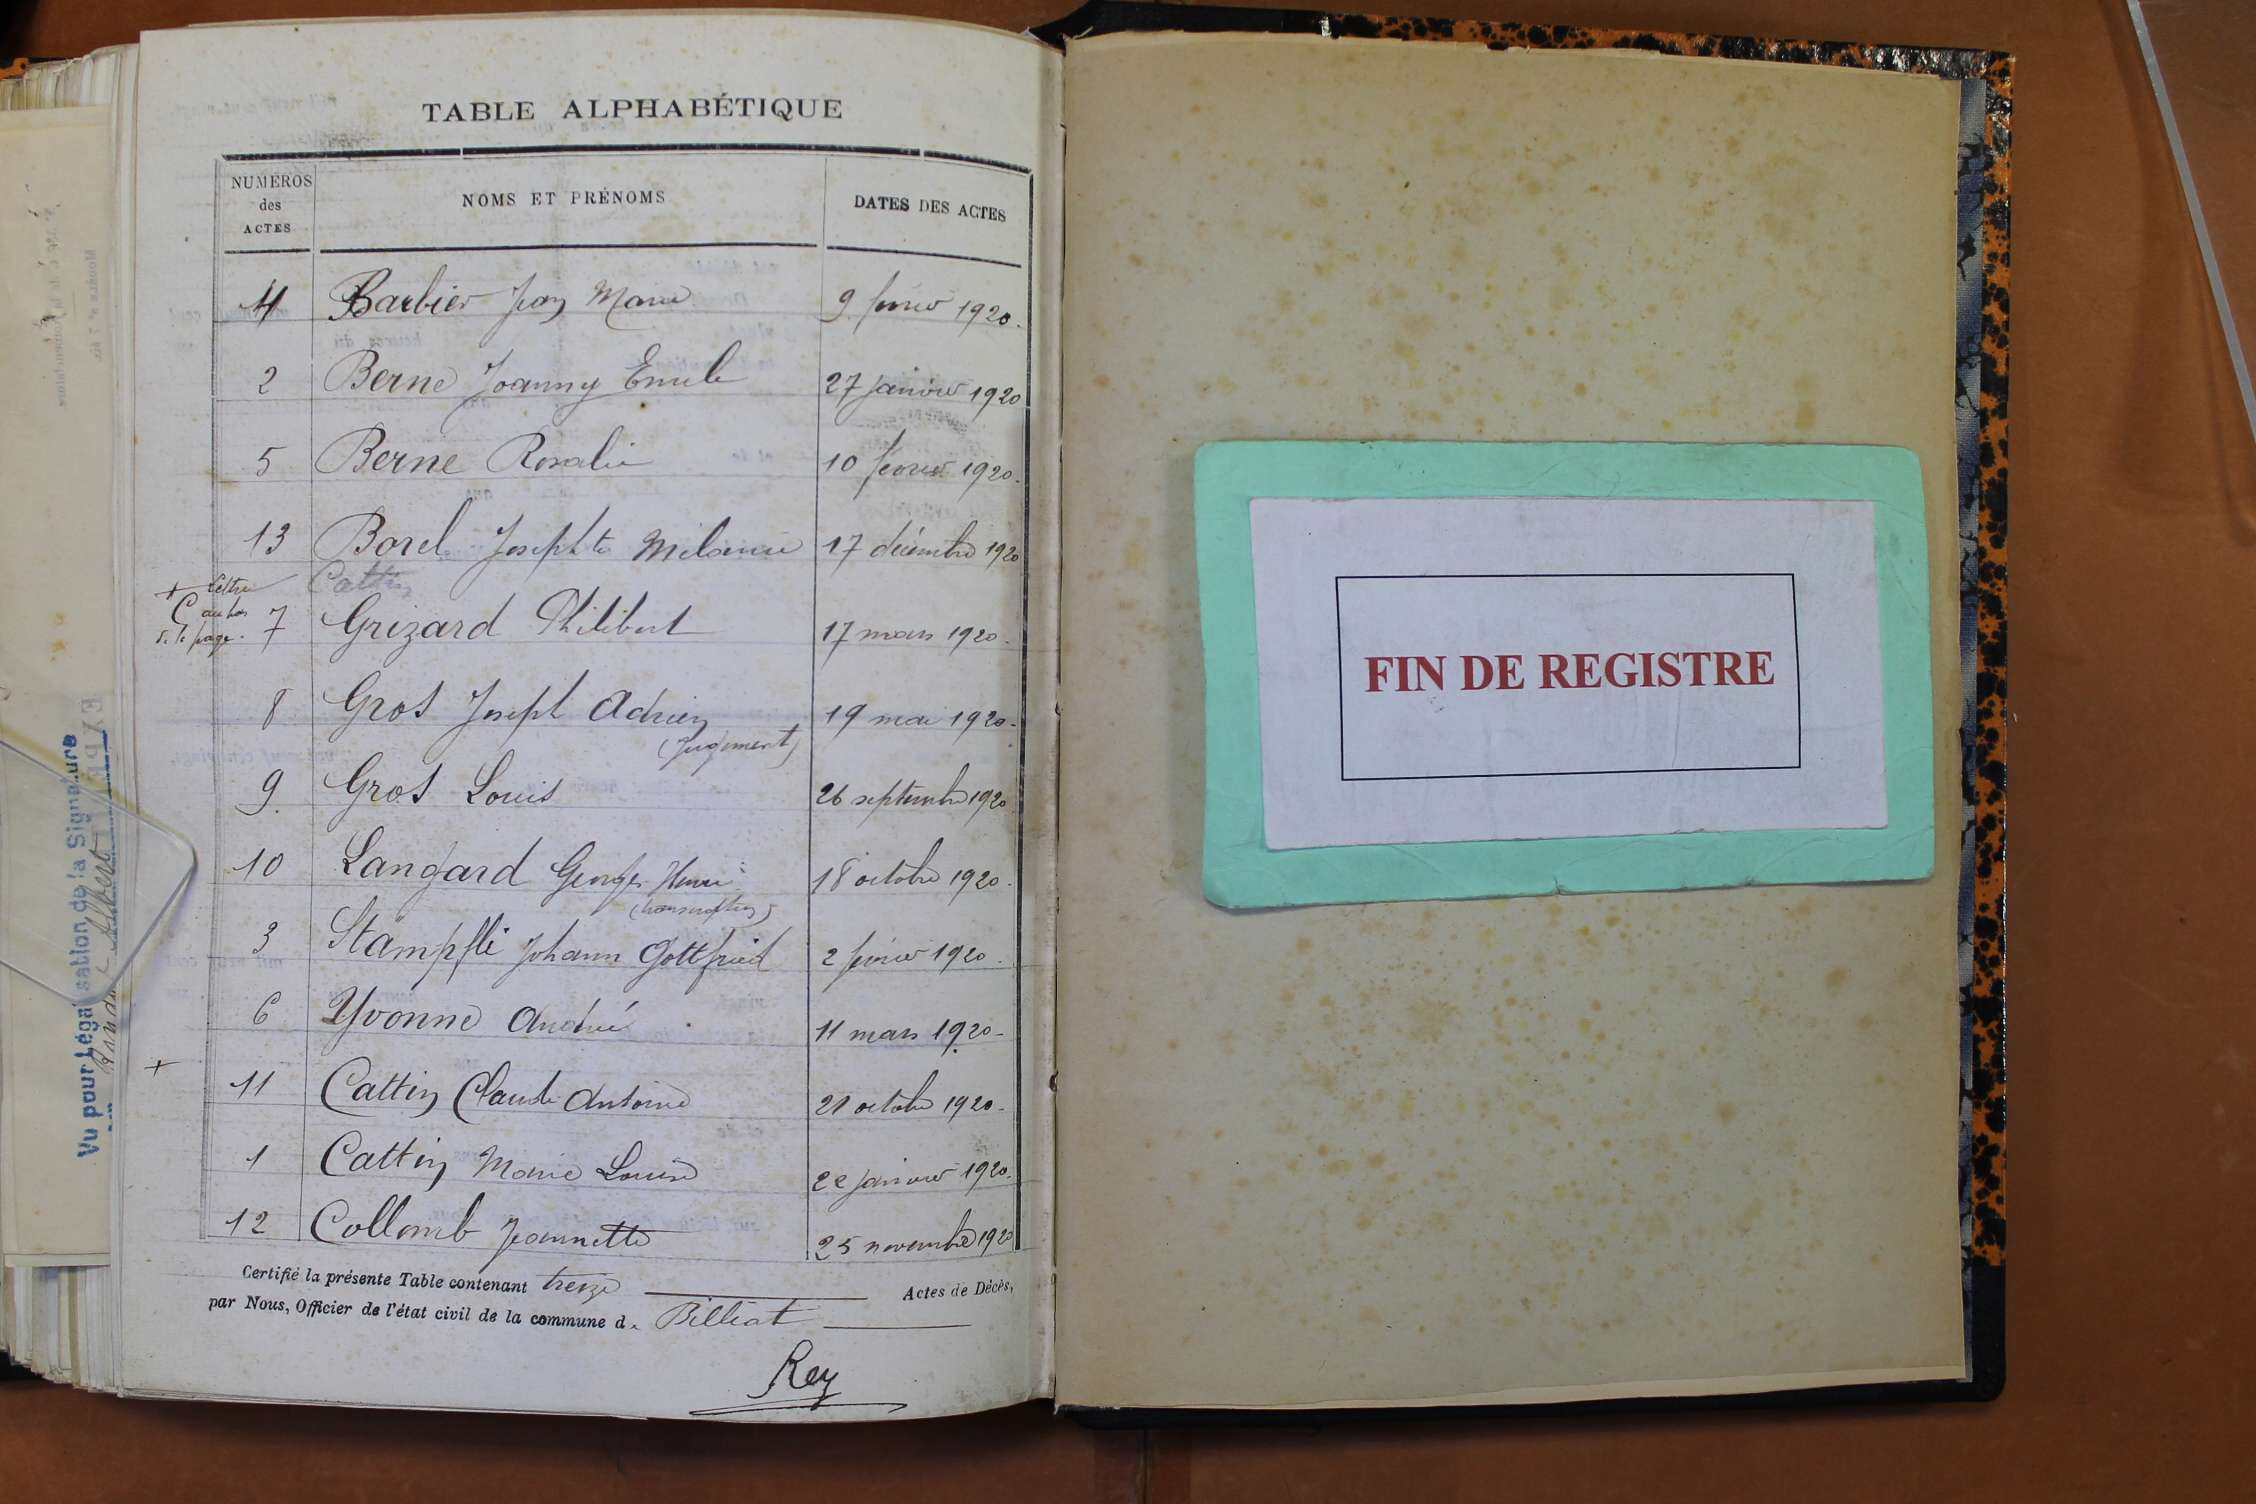 TABLE ALPHABÉTIQUE
NUMÉROS des ACTES NOMS ET PRÉNOMS DATES DES ACTES
4 Barbier Jean Marie 9 février 1920.
2 Berne Joanny Emile 27 janvier 1920
5 Berne Rosalie 10 février 1920.
13 Borel Josephte Mélanie 17 décembre 1920
+ lettre Cattin
C au bas
de la page. 7 Grizard Philibert 17 mars 1920.
8 Gros Joseph Adrien 19 mai 1920.
(Jugement)
9. Gros Louis 26 septembre 1920
10 Langard Georges Henri 18 octobre 1920.
(transcription)
3 Stämpfli Johann Gottfried 2 février 1920.
6 Yvonne André 11 mars 1920.
+ 11 Cattin Claude Antoine 21 octobre 1920.
1 Cattin Marie Louise 22 janvier 1920.
12 Collomb Jeannette 25 novembre 1920
Certifié la présente Table contenant treize Actes de Décès,
par Nous, Officier de l'état civil de la commune d. Billiat
Rey
Vu pour Légalisation de la Signature
FIN DE REGISTRE